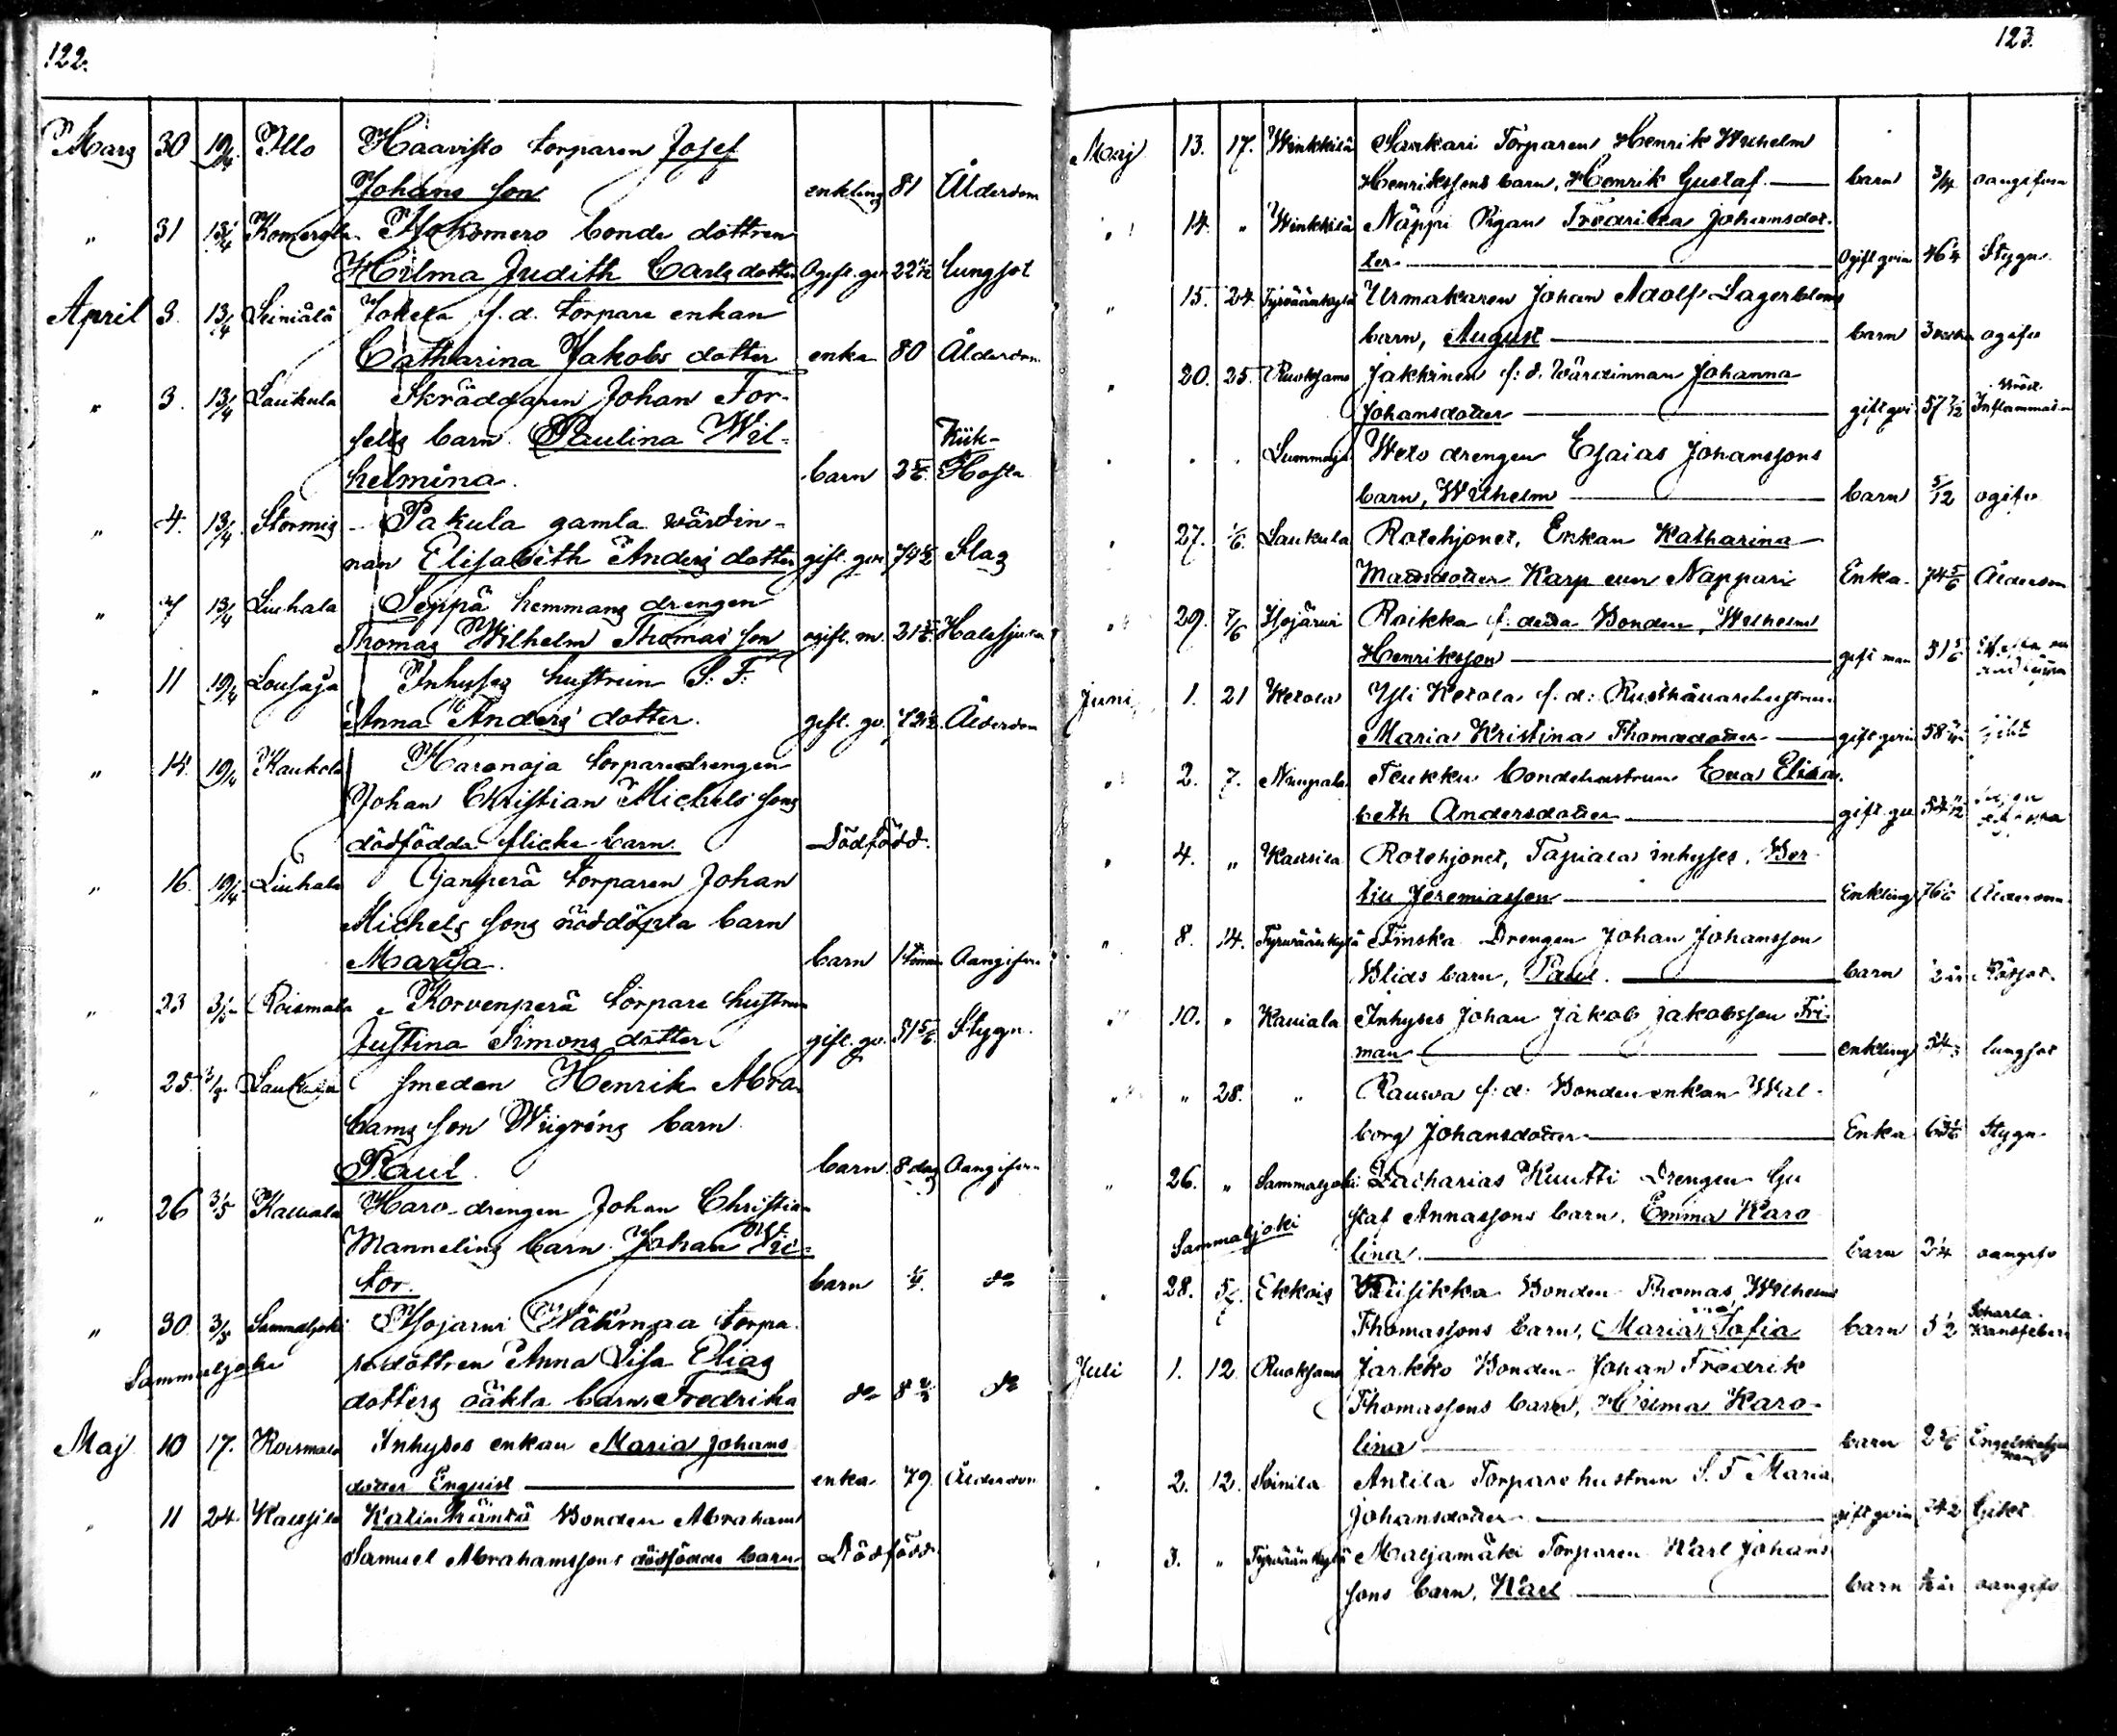 122.
Mars 30 19/4 Illo Haavisto torparen Josef
Johans son enkling 81 Ålderdom
" 31 13/4 Isokomero bonde dottren
Hilma Judith Carls dotter Ogift. qv. 22 lungsot
April 3. 13/4 Jokela f.d. torpare enkan
Catharina Jakobs dotter enka 80 Ålderdom
" 3. 13/4 Laukula Skräddaren Johan Tor-
sells barn Paulina Wil- Kik-
helmina. barn Hosta
" 4. 13/4 Stormis Pakula gamla wärdin-
nan Elisabeth Anders dotter gift. qv. Slag
" 7 13/4 Liuhala Seppä hemmans drengen
Thomas Wilhelm Thomas son ogift. m. Halssjuka
" 11 19/4 Lousaja Inhyses hustrun S. F.
Anna Anders dotter. gift. qv. Ålderdom
" 14. 19/4 Kaukola Haronoja torparedrengen
Johan Christian Michels sons
dödfödda flicke barn. Dödfödd.
" 16. 19/4 Liuhala Ojanperä torparen Johan
Michels sons nöddöpta barn
Maria. barn 1 timme Oangifven
" 23 3/5 Roismala Korvenperä torpare hustrun
Justina Simons dotter gift. qv. 51 5/6 Stygn.
" 25. 3/5 Laukula Smeden Henrik Abra-
hams son Wiigréns barn
Paul. barn 8 dag Oangifven
" 26 3/5 Kauiala Haro-drengen Johan Christian
Mannelins barn Johan Vic-
tor. barn d:o
" 30. 3/5 Sammaljoki torpa-
Sammaljoki redottren Anna Lisa Elias
dotters oäkta barn Fredrika d:o d:o
Maj 10 17. Roismala Inhyses enkan Maria Johans
dotter Enquist enka 79 Ålderdom
" 11 24. Kaltsila Katinhäntä Bonden Abraham
Samuel Abrahamssons dödfödda barn Dödfödd.
123.
Maj 13. 17. Winkkilä Saakari Torparen Henrik Wilhelm
Henrikssons barn, Henrik Gustaf. barn 3/4 oangifven
" 14. " Winkkilä Näppi Pigan Fredrika Johansdot-
ter Ogift qvin 46 Stygn.
" 15. 24. Tyrväänkylä Urmakaren Johan Adolf Lagerbloms
barn, August barn ogifv
" 20. 25. Ruoksamo Jakkinen f: d. Wärdinnan Johanna
Johansdotter gift qvi 57 Inflammat-
" " " Lummaja Weto drengen Esaias Johanssons
barn, Wilhelm barn 5/12 ogifv
" 27. 1/6. Laukula Rotehjonet, Enkan Katharina
Matsdotter Karp eller Nappari Enka. 74 5/6 Ålderdom
" 29. 7/6 Isojärvi Raikka f. detta Bonden, Wilhelm
Henriksson gift man 51
Juni 1. 21 Ketola Yli Ketola f: d: Rusthållarehustrun
Maria Kristina Thomasdotter gift qvin 58 Gikt
" 2. 7. Nuupala Teukku bondehustrun Eva Elisa-
beth Andersdotter gift. qv 54
" 4. " Kaltsila Rotehjonet, Tapiala inhyses, Ber-
till Jeremiasson Enkling 76 Ålderdom
" 8. 14. Tyrväänkylä Finska Drengen Johan Johansson
Blids barn, Paul. barn Rötsot.
" 10. " Kauiala Inhyses Johan Jakob Jakobsson Fri-
man enkling 54 lungsot
" " 28. " Rauva f: d: Bonden enkan Wal-
borg Johansdotter Enka Stygn
" 26. " Sammaljoki Zacharias Kuutti Drengen Gu
Sammaljoki staf Annassons barn, Emma Karo
lina barn oangifv
" 28. 5/7. Ekkois Kiisikka Bonden Thomas Wilhelm
Thomassons barn, Maria Sofia barn Scharla-
kansfeber
Juli 1. 12. Ruoksamo Jaakko Bonden Johan Fredrik
Thomassons barn, Hilma Karo-
lina barn Engelska
2. 12. Soinila Antila Torparehustrun S. F Maria
Johansdotter gift qvin Giktt
" 3. " Tyrväänkylä Maljamäki Torparen Karl Johans
sons barn, Karl barn oangifv